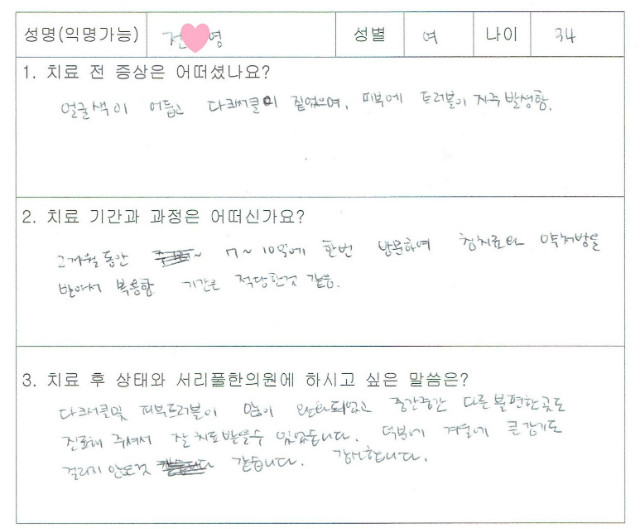 성명(익명가능) 전 영 성별 여 나이 34
1. 치료 전 증상은 어떠셨나요?
얼굴색이 어둡고 다크써클이 짙었으며, 피부에 트러블이 자주 발생함.
2. 치료 기간과 과정은 어떠신가요?
2개월동안 ~ 7~10일에 한번 방문하여 침치료와 약처방을
받아서 복용함 기간은 적당한것 같음.
3. 치료 후 상태와 서리풀한의원에 하시고 싶은 말씀은?
다크써클및 피부트러블이 많이 완화되었고 중간중간 다른 불편한곳도
진료해 주셔서 잘 치료받을수 있었습니다. 덕분에 겨울에 큰감기도
걸리지 않은것 같습니다. 감사합니다.